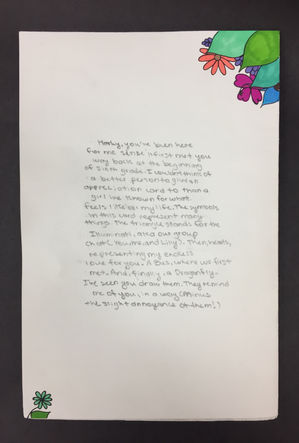 you've been here
for me since I first met you
way back at the beginning
of sixth grade. I couldn't think of
a better person to give an
appreciation card to than a
girl I've known for what
feels like all my life. The symbols
in this card represent many
things. The triangle stands for the
Illuminati, aka our group
chat (You, me, and Lilly). Then, hearts,
representing my endless
love for you. A Bus, where we first
met. And, finally, a Dragonfly.
I've seen you draw them. They remind
me of you, in a way (Minus
the slight annoyance of them!)